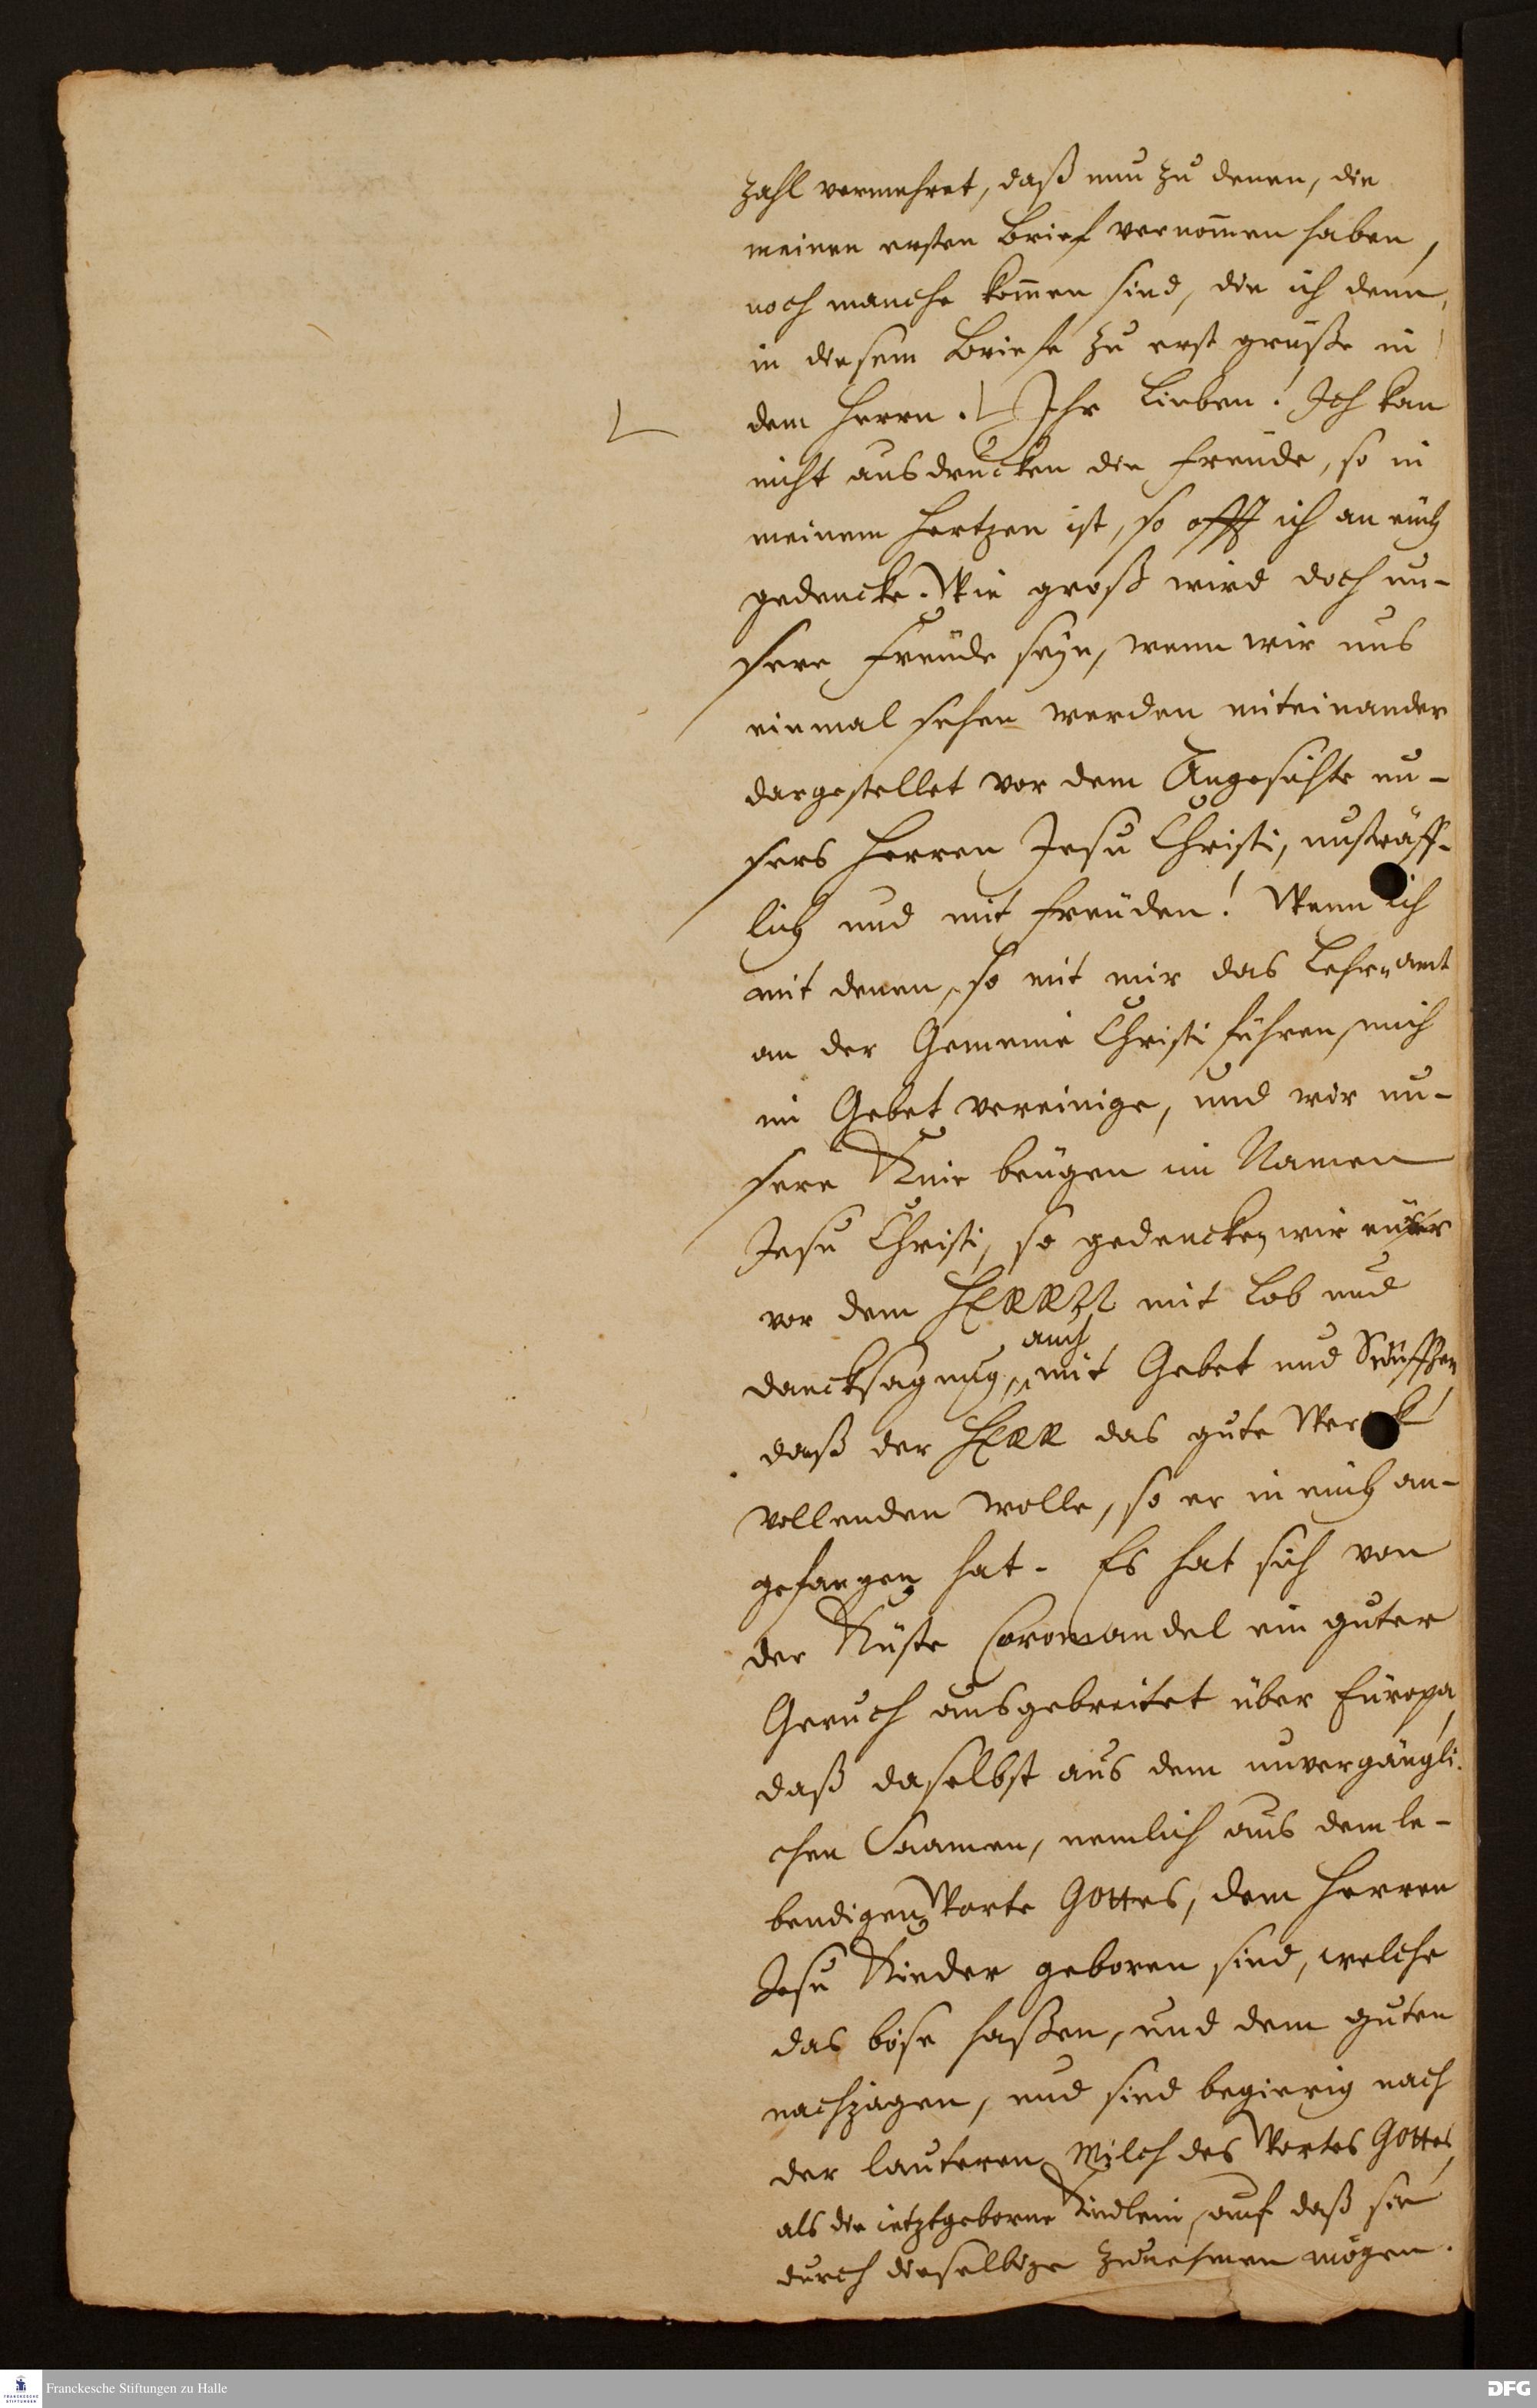 zahl vermehret, daß nun zu denen, die
meinen ersten Brief vernom̅en haben,
noch manche kom̅en sind, die ich denn,
in diesem Briefe zu erst grüße in
dem Herrn. Ihr Lieben! Ich kan
nicht ausdrucken die Freude, so in
meinem Hertzen ist, so offt ich an euch
gedencke. Wie groß wird doch un-
sere Freude seyn, wenn wir uns
einmal sehen werden miteinander
dargestellet vor dem Angesichte un-
sers Herren Jesu Christi, unsträff-
lich und mit Freuden! Wenn ich
mit denen, so mit mir das Lehr-amt
an der Gemeine Christi führen, mich
im Gebet vereinige, und wir un-
sere Knie beugen im Namen
Jesu Christi, so gedencken wir euer
vor dem HERRN mit Lob und
auch
dancksagung, mit Gebet und Seuffzen,
daß der HERR das gute Werck
vollenden wolle, so er in euch an-
gefangen hat. Es hat sich von
der Küste Coromandel ein guter
Geruch ausgebreitet über Europa,
daß daselbst aus dem unvergängli-
chen Saamen, nemlich aus dem le-
bendigen Worte Gottes, dem Herren
Jesu Kinder geboren sind, welche
das böse haßen, und dem guten
nachjagen, und sind begierig nach
der lauteren Milch des Wortes Gottes,
als die ietztgeborne Kindlein, auf daß sie
durch dieselbige zunehmen mögen.
Franckesche Stiftungen zu Halle
FRANCKESCHE STIFTUNGEN
DFG